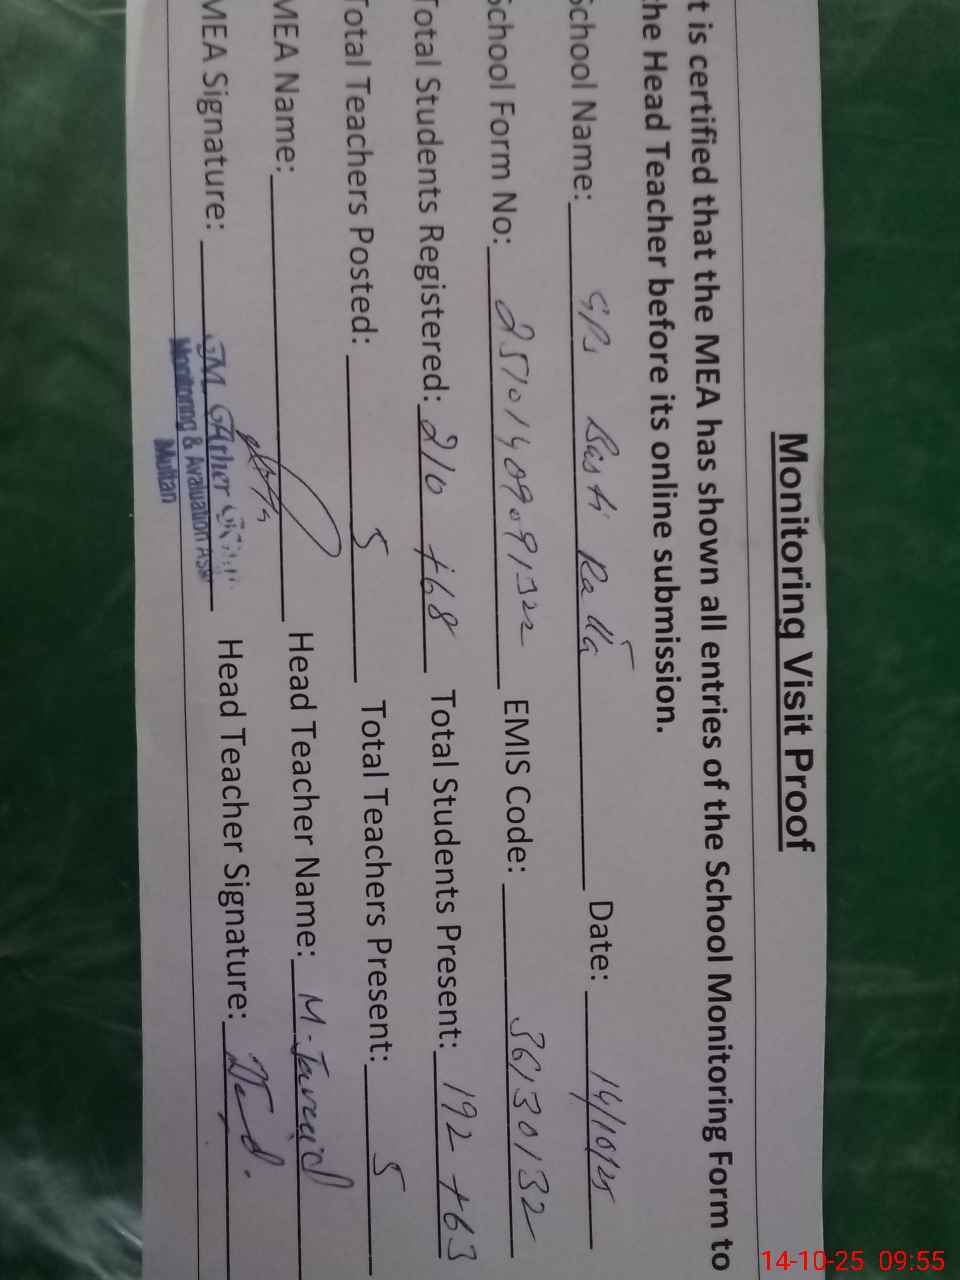 Monitoring Visit Proof
t is certified that the MEA has shown all entries of the School Monitoring Form to
he Head Teacher before its online submission.
School Name: GPS Basti Date: 14/10/25
School Form No: EMIS Code: 36130132
Total Students Registered: 210 +68 Total Students Present: 192 +63
Total Teachers Posted: 5 Total Teachers Present: 5
MEA Name: Head Teacher Name: M. Javaid
MEA Signature: Head Teacher Signature:
Monitoring & Avaluation ASS
Multan
14-10-25 09:55